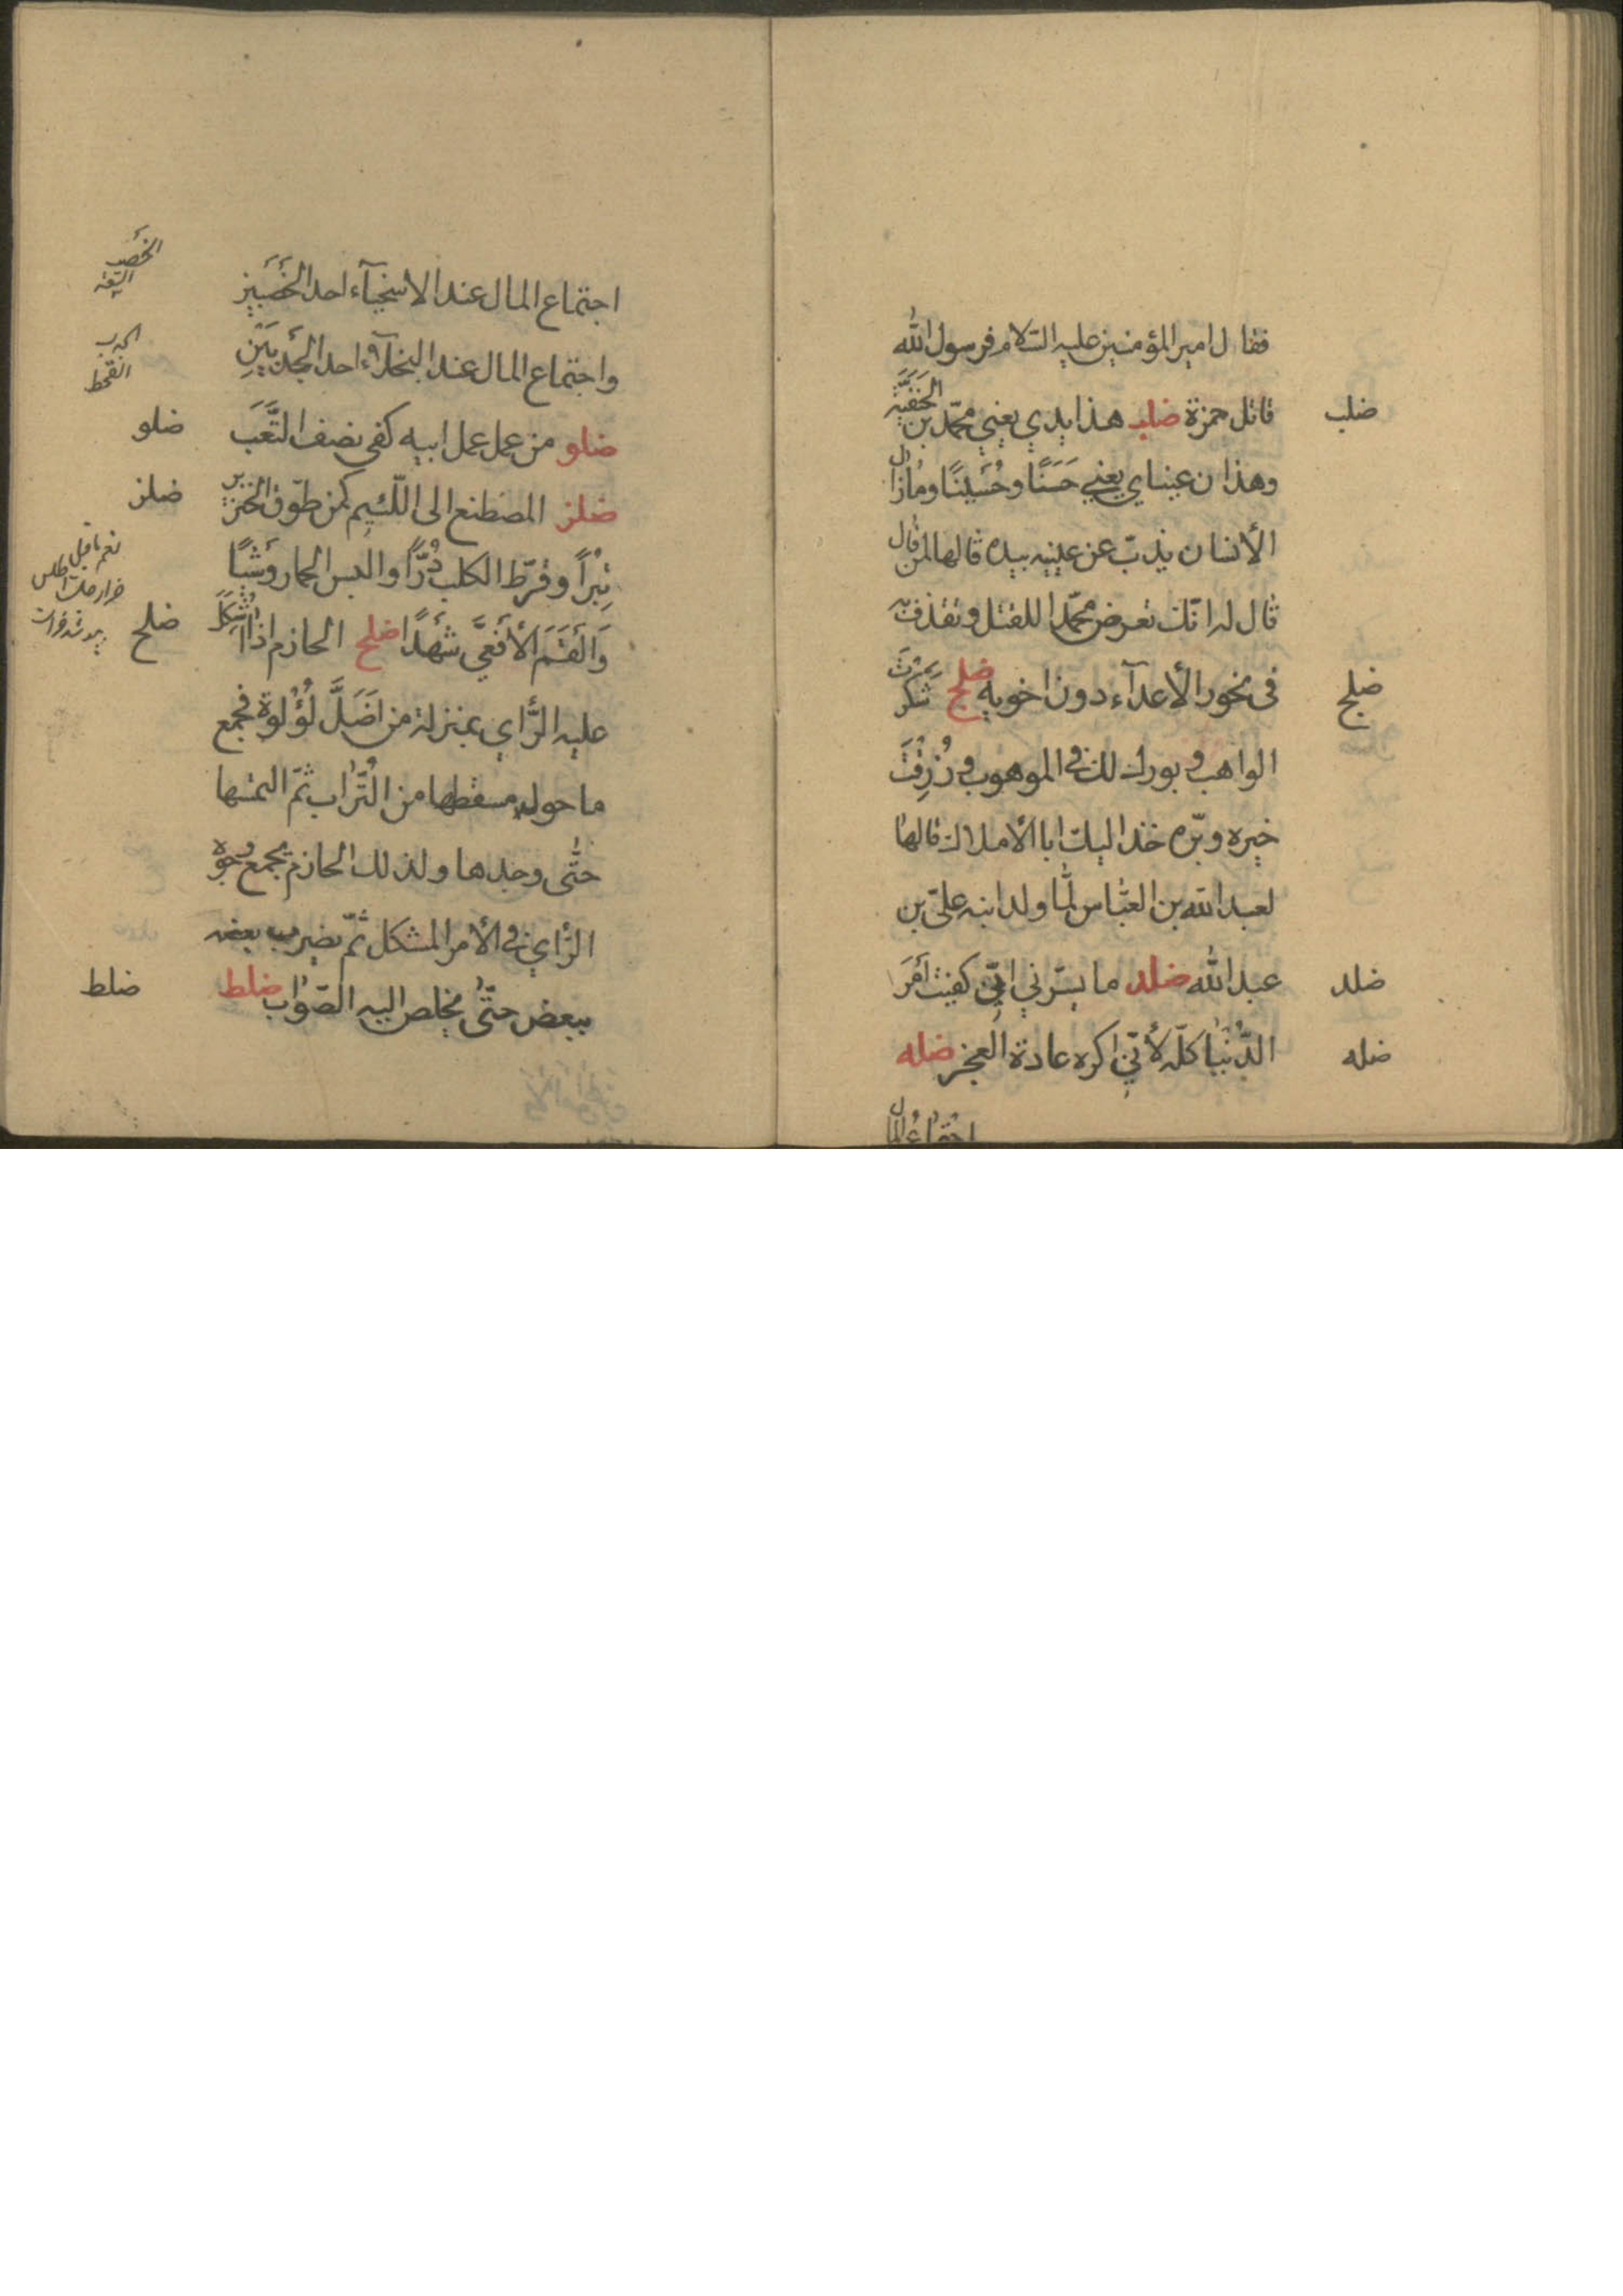 فقال امير المؤمنين عليه السّلام فرسول اللّٰه
ضلب
قاتل حمزة ضلب هذا يدي يعني محمّد بن الحَنَفِيَّة
وهذان عيناي يعني حَسَنًا وحُسَينًا ومٰازال
الأنسان يذبّ عن عينيه بيده قالها لمن قال
قال له انّك تعرض محمّدا للقتل وتقذف به
ضلج
فى نحور الأعدآء دون اخويه ضلج شَكَرْتَ
الواهب و بورك لك في الموهوب و رُزِقْتَ
خيره وبرّه خذ اليك ابا الأملاك قالها
لعبد اللّه بن العبّاس لمّا ولد ابنه عليّ بن
ضلد
عبد اللّٰه ضلد ما يسرّني انّي كفيت اَمْرَ
ضله
الدُّنْيٰا كلّه لأنّي اكره عادة العجز ضله
اجتماع المال
اجتماع المال عند الاسخيآء احد الخَصَبَين
الخصب
واجتماع المال عند البخلآء احد الجَدْبَيْنِ
الجدب
القحط
ضلو
ضلو من عمل عمل ابيه كفى نصف التَّعَبَ
ضلز
ضلز المصطنع الى اللّئيم كمن طوّق الخنزير
تِبْراً وقرّط الكلب دُرّاً والبس الحمار وَشْيًا
ضلح
وَاَلْقَمَ الأَفعىَّ شَهْدًا ضلح الحازم اذا اُشْكِلَ
عليه الرَّأي بمنزلة من اَضَلَّ لُؤْلُوة فجمع
ما حول مسقطها من التُّرٰاب ثمّ التمسها
حتّٰى وجدها ولذلك الحازم يجمع وجوه
الرّأي في الأمر المشكل ثمّ يضرب بعضه
ضلط
ببعض حتّٰى يخلص اليه الصّوٰاب ضلط